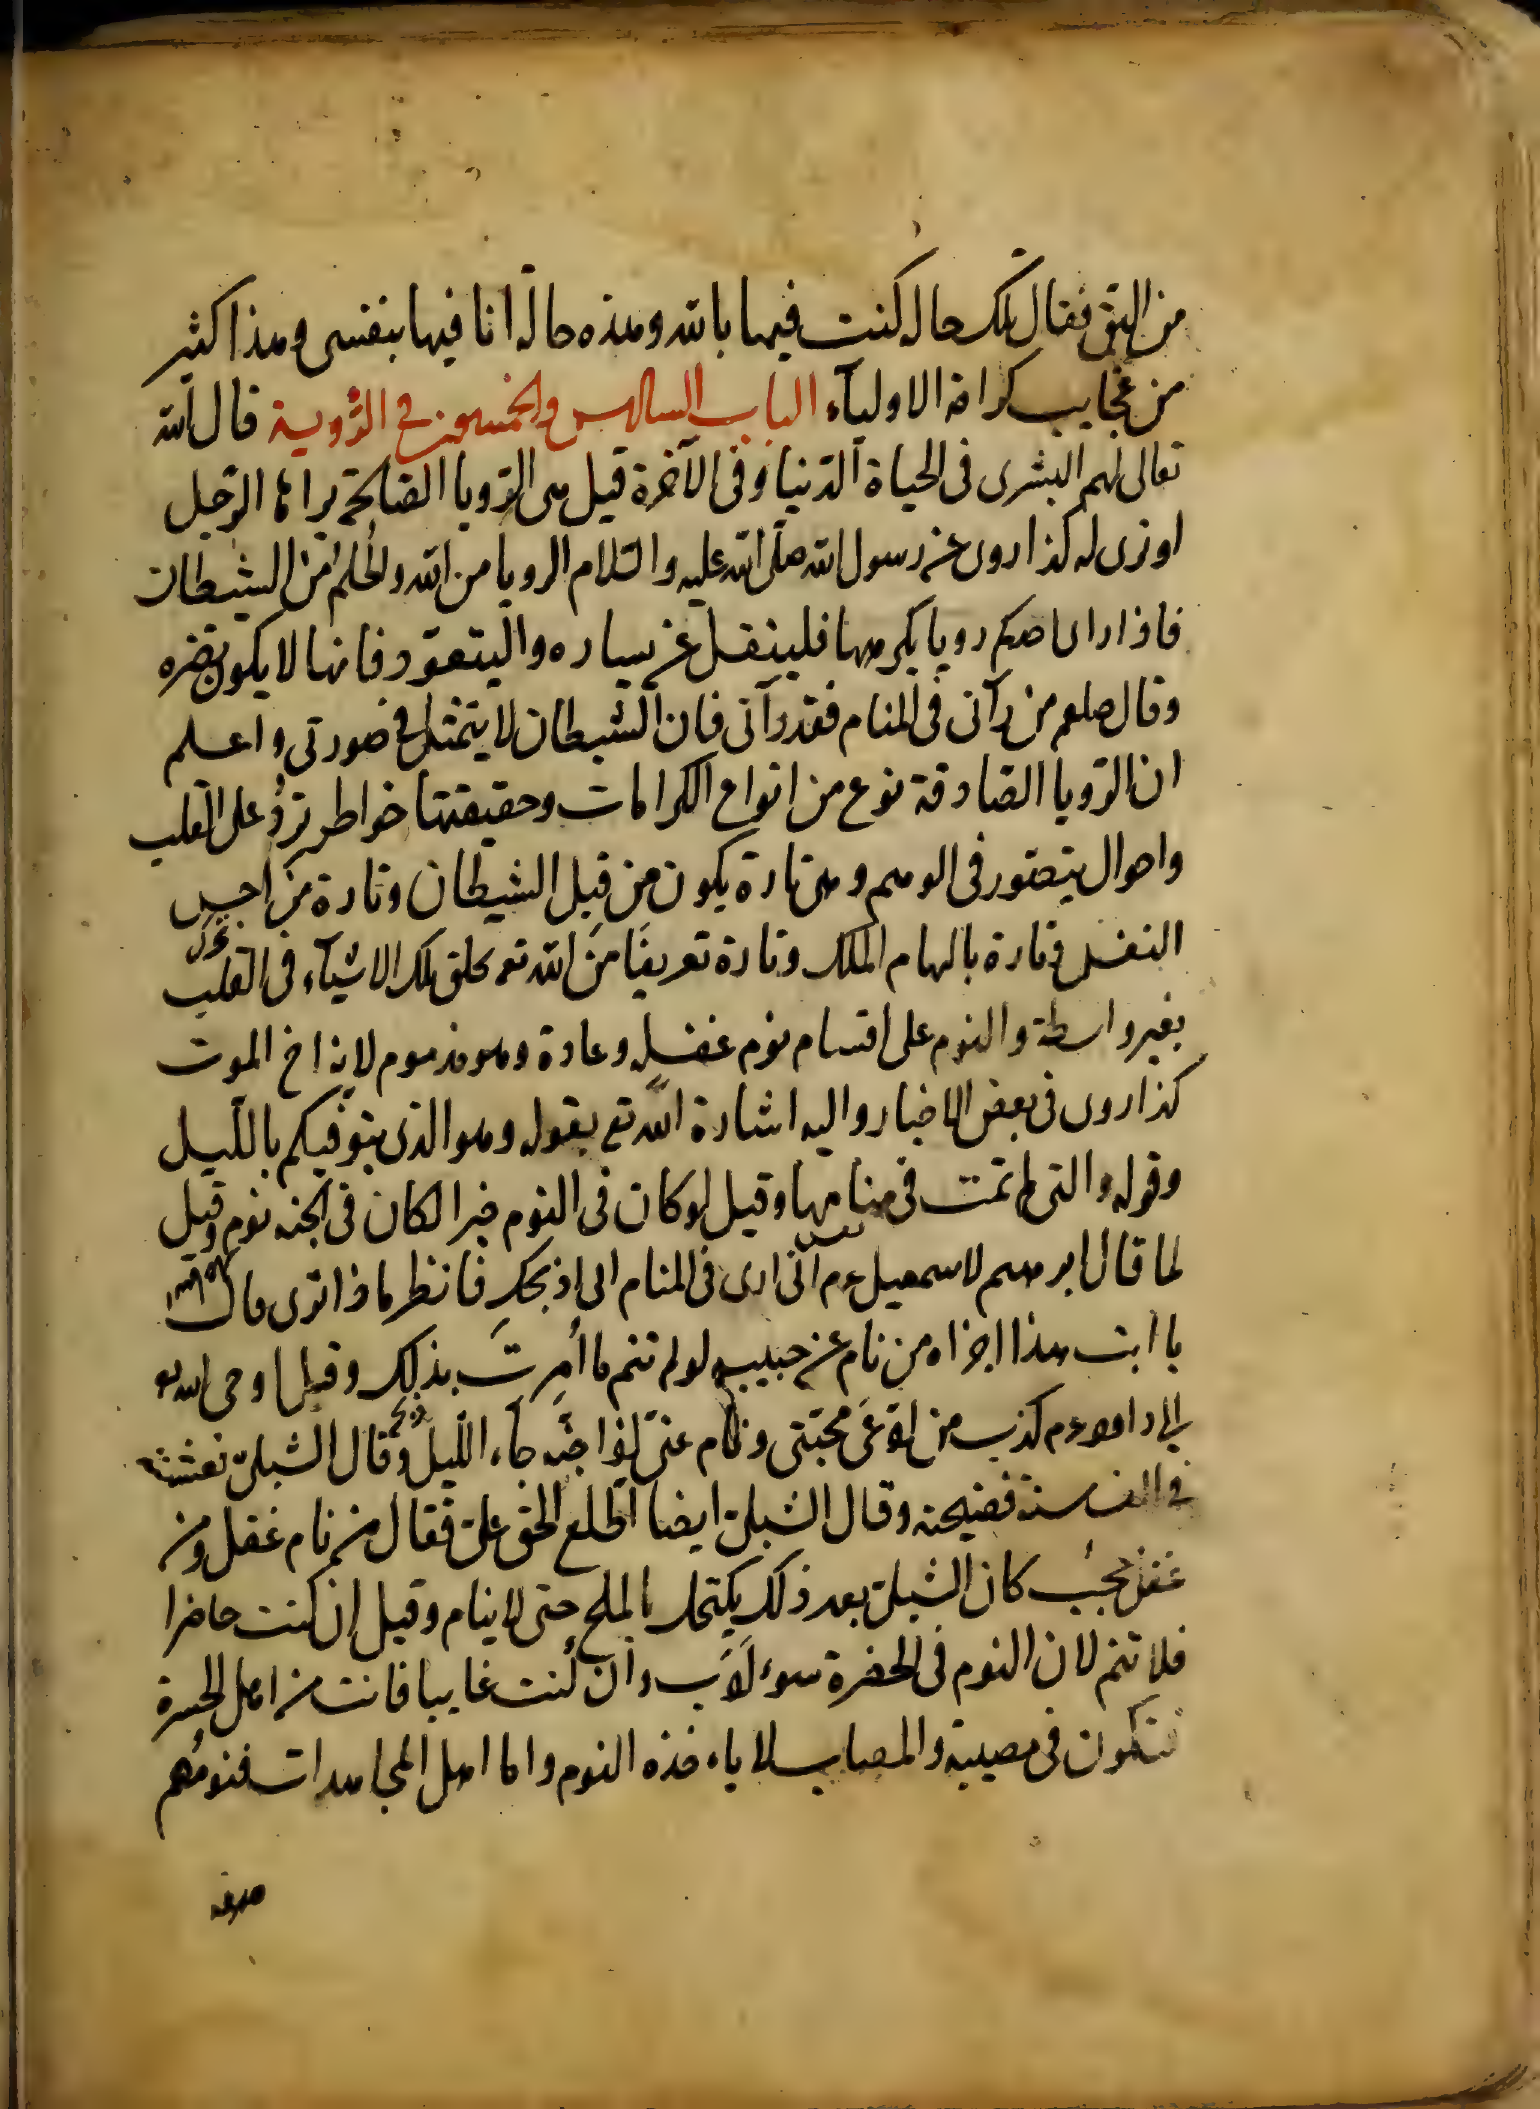 من البق فقال تلك حالة كنت فيها بالله وهذه حالة انا فيها بنفسى وهذا كثير
من عجايب كرامة الاولياء الباب السادس والخمسون في الرؤية قال الله
تعالى لهم البشرى فى الحياة الدنيا وفى الآخرة قيل هى الرويا الصالحة يراها الرجل
او ترى له كذا روى عن رسول الله صلى الله عليه والسلام الرويا من الله والحلم من الشيطان
فاذا راى احدكم رويا يكرهها فليتفل عن يساره واليتعوذ فانها لا يكون تضره
وقال صلعم من رآنى فى المنام فقد رآنى فان الشيطان لا يتمثل فى صورتى واعلم
ان الرويا الصادقة نوع من انواع الكرامات وحقيقتها خواطر ترد على القلب
واحوال يتصور فى الوهم وهى تارة يكون من قبل الشيطان وتارة من
النفس وتارة بالهام الملك وتارة تعريفا من الله تعـ بخلق تلك الاشياء فى القلب
بغير واسطة والنوم على اقسام نوم غفلة وعادة وهو مذموم لانه اخ الموت
كذا روى فى بعض الاخبار واليه اشارة الله تع بقوله وهو الذى يتوفيكم بالليل
وقوله والتى لم تمت فى منامها وقيل لو كان فى النوم خيرا لكان فى الجنه نوم وقيل
لما قال ابرهيم لاسمعيل ءم انى ارى فى المنام انى اذبحك فانظر ماذا ترى قال
يا ابت هذا جزاء من نام عن حبيبه لو لم تنم ما أمرت بذلك وقيل اوحى الله تع
الى داود ءم كذب من ادعى محبتى ونام عنى اذا جنه جاء الليل وقال الشبلى نعسة
فى الف سنة فضيحة وقال الشبلى ايضا اطلع الحق على فقال من نام غفل ومن
غفل حجب كان الشبلى بعد ذلك يكتحل بالملح حتى لا ينام وقيل ان كنت حاضرا
فلا تنم لان النوم فى الحضرة سوء لادب وان كنت غايبا فانت من اهل الحسرة
فتكون فى مصيبة والمصاب لا ياءخذه النوم واما اهل المجاهدات فنومهم
صدقة